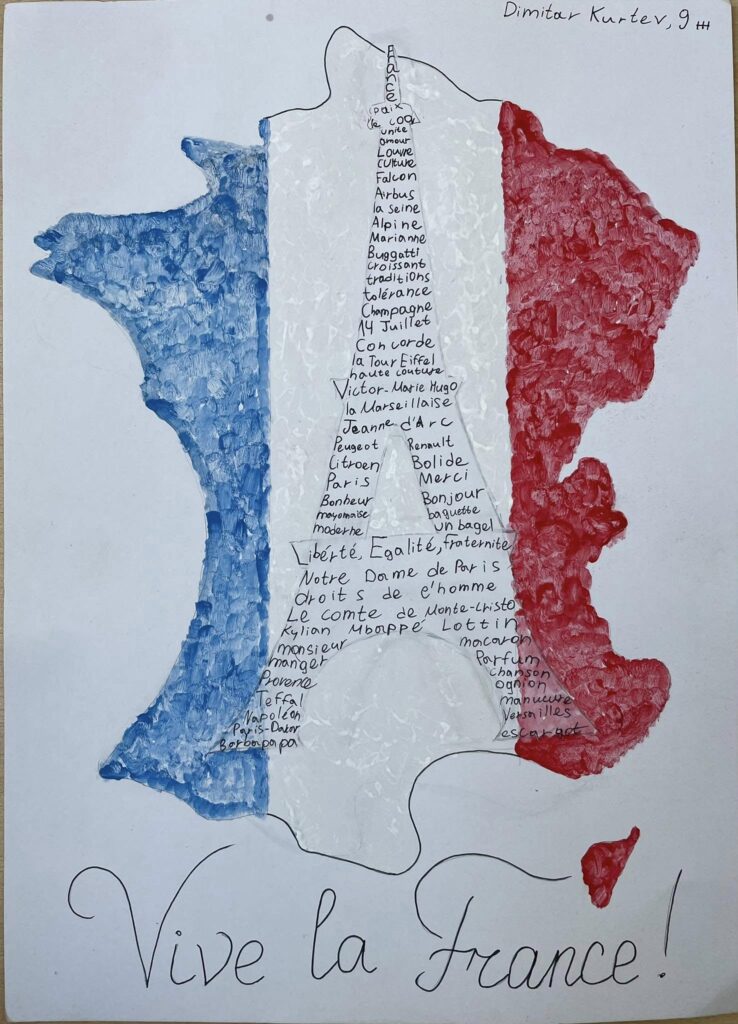 Dimitar Kurtev, 9 ш
France
Paix
le coq
unité
amour
Louvre
culture
Falcon
Airbus
la Seine
Alpine
Marianne
Buggatti
croissant
traditions
tolérance
Champagne
14 Juillet
Concorde
la Tour Eiffel
haute couture
Victor-Marie Hugo
la Marseillaise
Jeanne d'Arc
Peugeot Renault
Citroen Bolide
Paris Merci
Bonheur Bonjour
mayonaise baguette
moderne un bagel
Liberté, Egalité, Fraternite
Notre Dame de Paris
droits de e'homme
Le comte de Monte-Cristo
Kylian Mbappé Lottin
monsieur macaron
manger Parfum
Provence chanson
Teffal ognion
Napoléon manucure
Paris-Dakar Versailles
Barbapapa escargot
Vive la France!